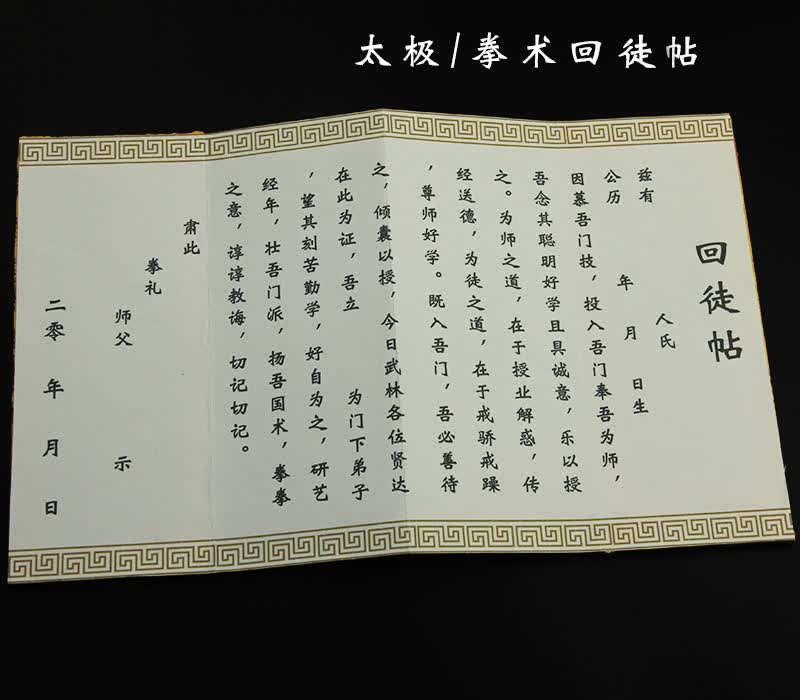 太极/拳术回徒帖
回徒帖
兹有 人氏
公历 年 月 日生
因慕吾门技，投入吾门奉吾为师，
吾念其聪明好学且具诚意，乐以授
之。为师之道，在于授业解惑，传
经送德，为徒之道，在于戒骄戒躁
，尊师好学。既入吾门，吾必善待
之，倾囊以授，今日武林各位贤达
在此为证，吾立 为门下弟子
，望其刻苦勤学，好自为之，研艺
经年，壮吾门派，扬吾国术，拳拳
之意，谆谆教诲，切记切记。
肃此
拳礼
师父 示
二零 年 月 日